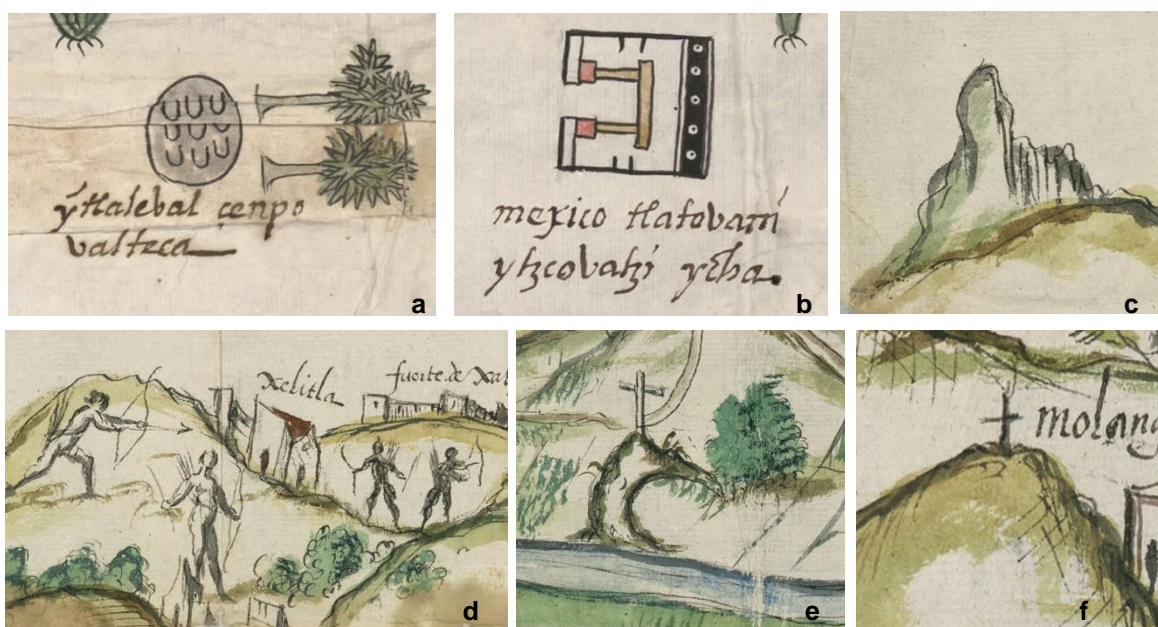 ytlalcbal çenpo
valteca
a
mexico tlatovani
ytzcovatzi ycha.
b
c
xelitla
fuerte de xal
d
e
molang
f